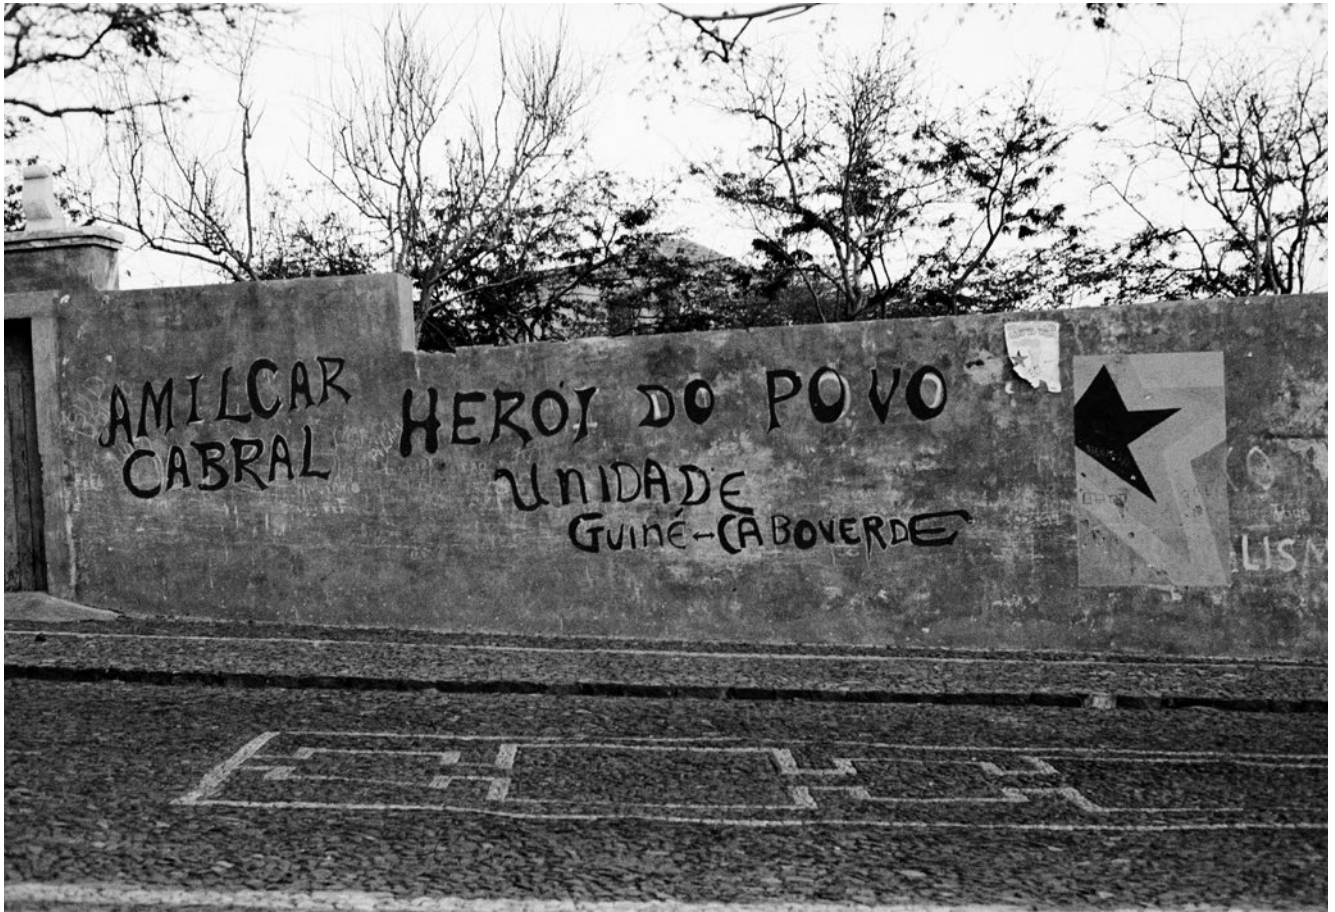 AMILCAR
CABRAL
HERÓI DO POVO
UNIDADE
GUINÉ-CABOVERDE
LISM